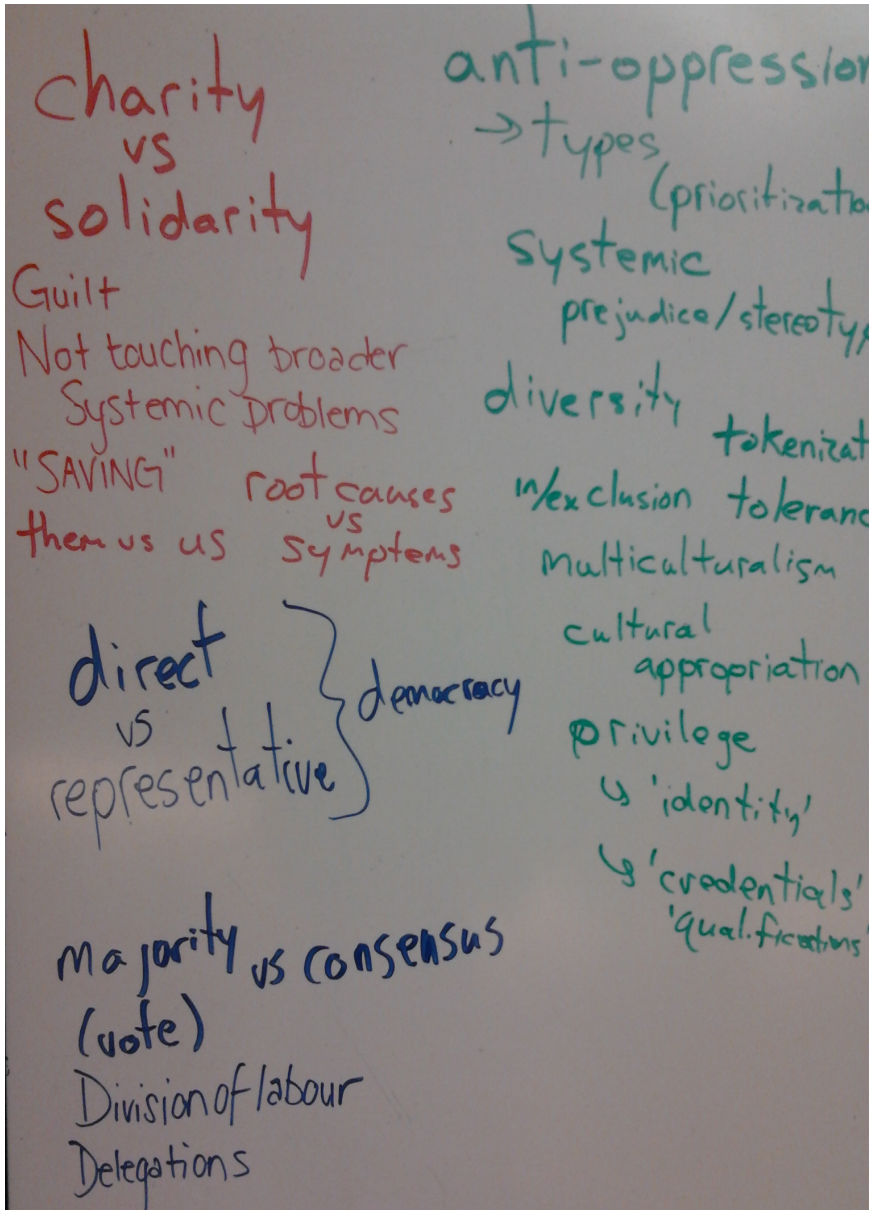 charity
vs
solidarity
Guilt
Not touching broader
Systemic problems
"SAVING"
them vs us
root causes
vs
symptoms
direct
vs
representative
democracy
majority vs consensus
(vote)
Division of labour
Delegations
anti-oppression
→ types
(prioritizatio
systemic
prejudice/stereotyp
diversity
tokenizat
in/exclusion
toleranc
multiculturalism
cultural
appropriation
privilege
↳ 'identity'
↳ 'credentials'
'qualifications'